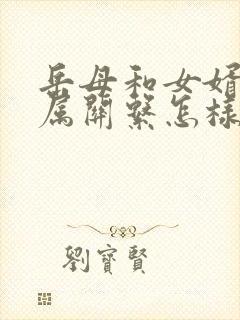 岳母和女婿
属關繫怎樣
劉寶賢